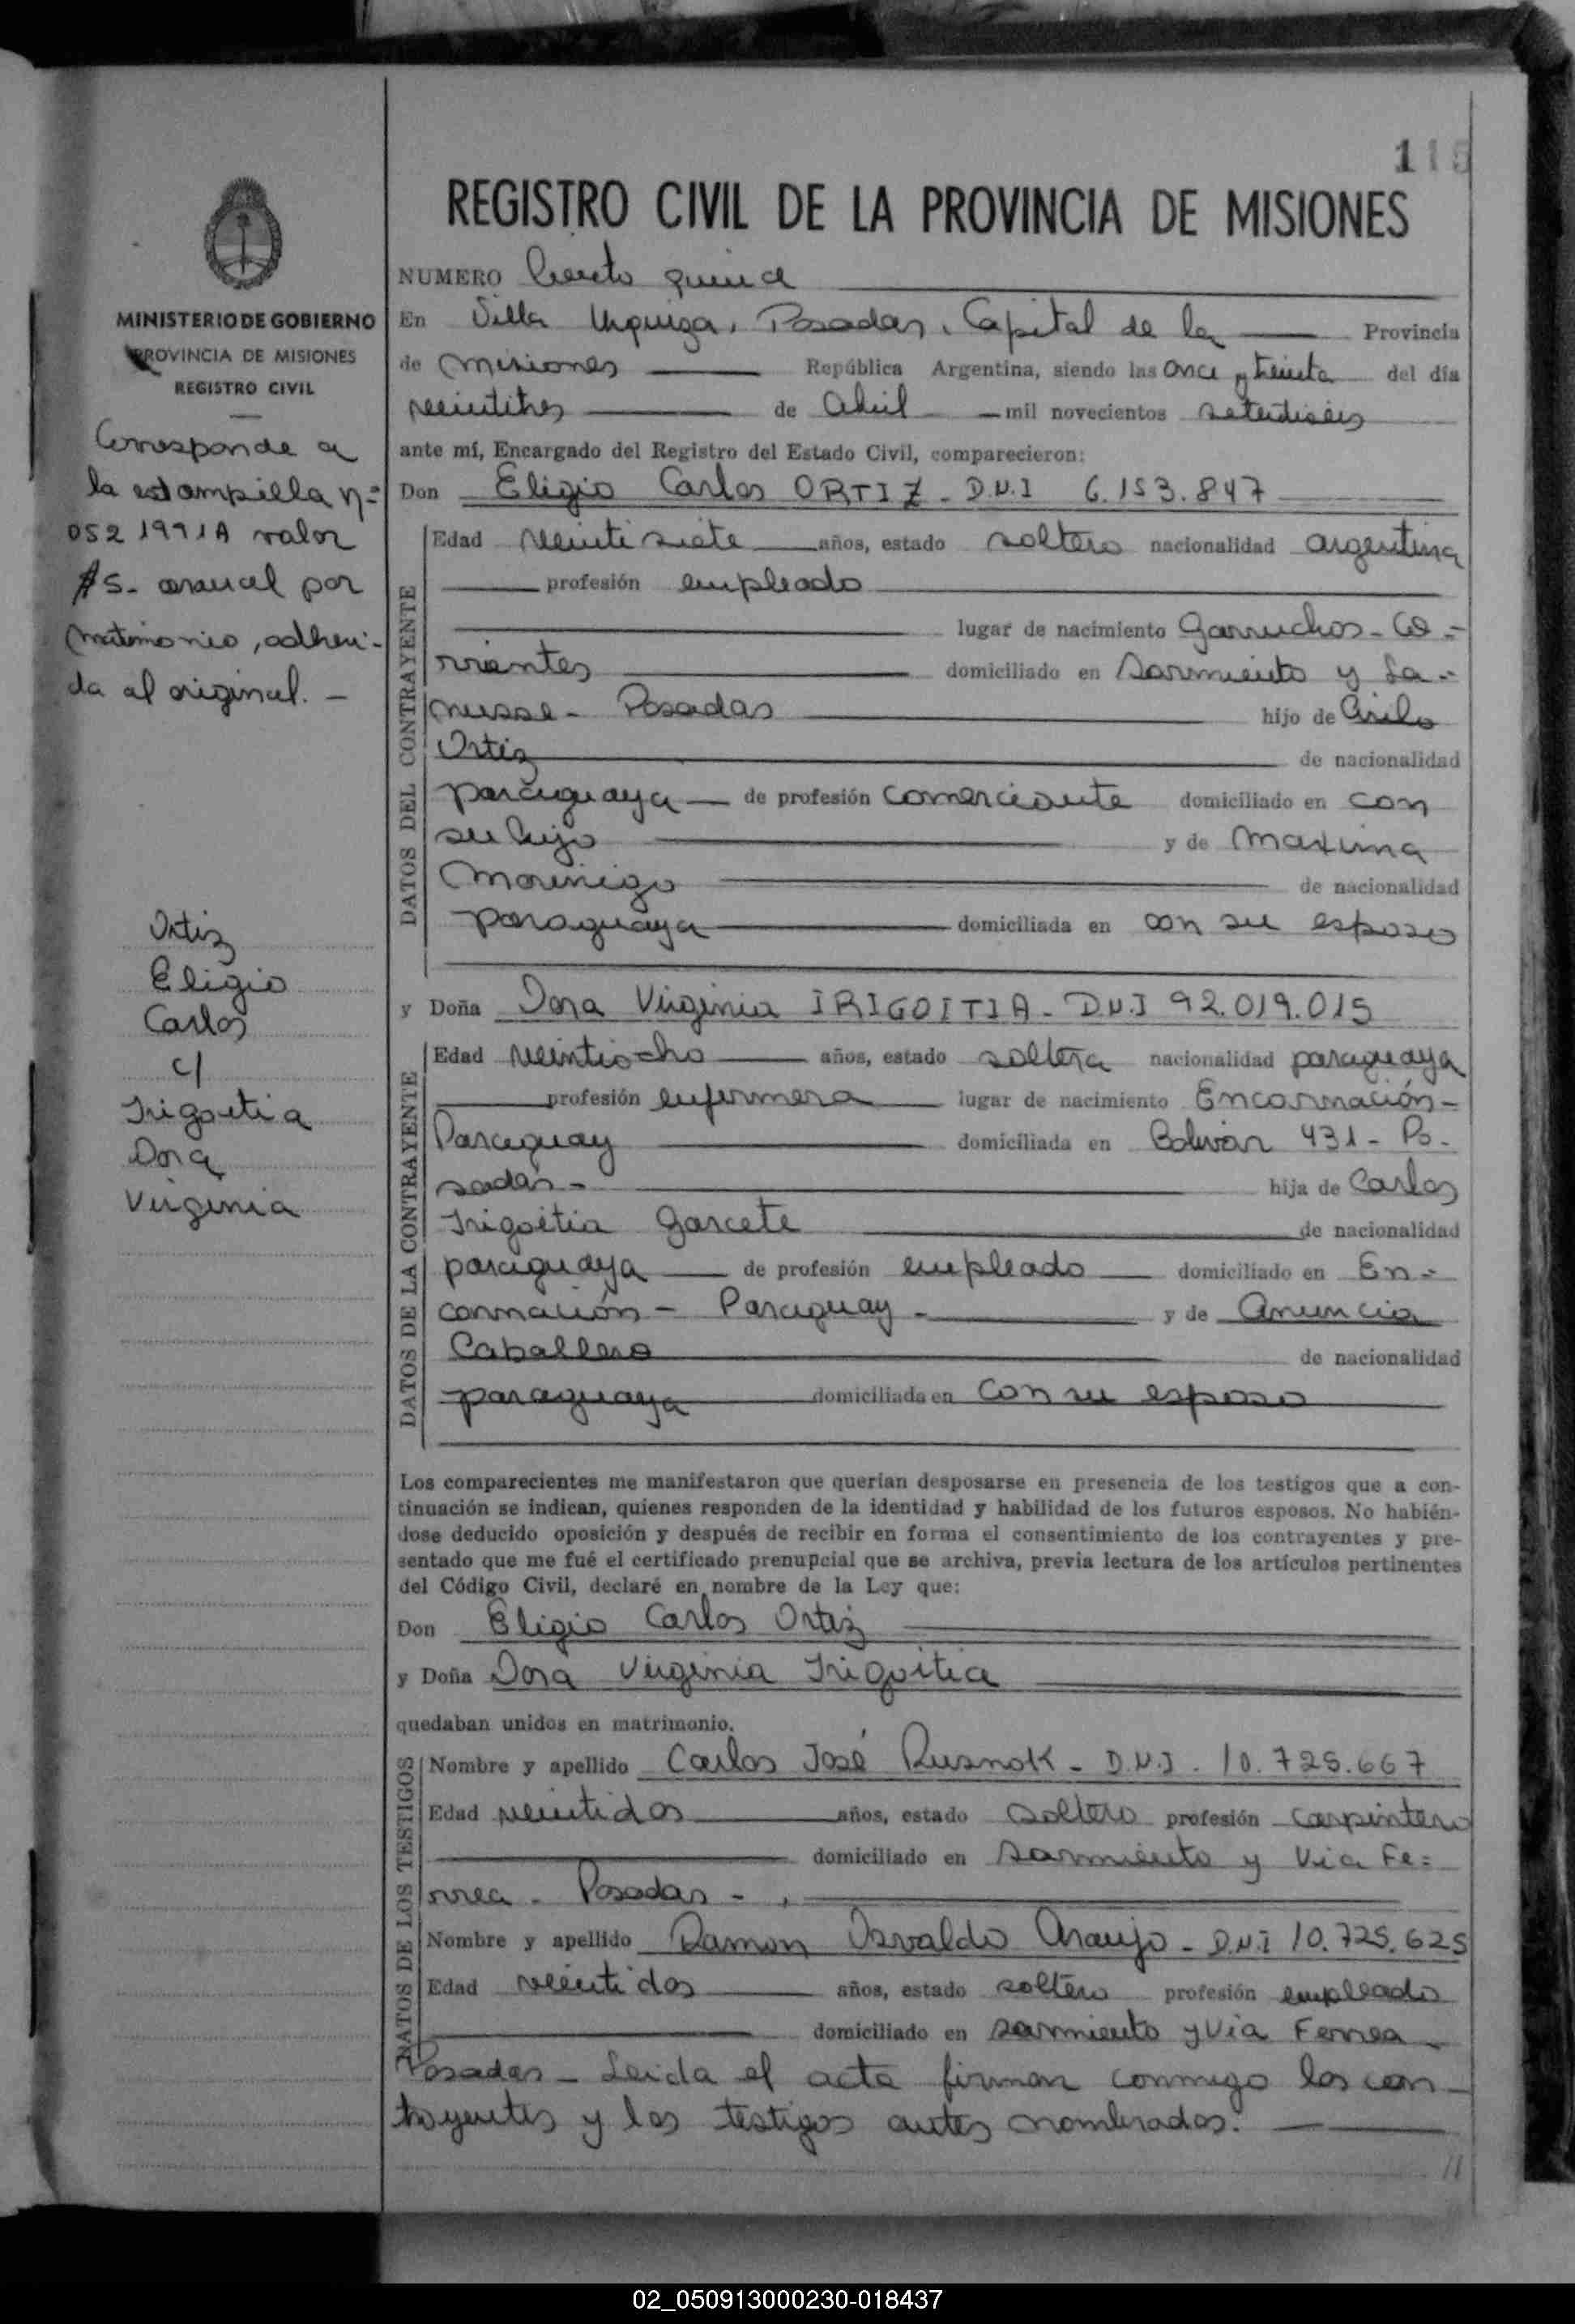 115
REGISTRO CIVIL DE LA PROVINCIA DE MISIONES
NUMERO Ciento quince
En Villa Urquiza, Posadas, Capital de la Provincia
de Misiones República Argentina, siendo las once y treinta del día
veintitres de Abril mil novecientos setentiseis
ante mí, Encargado del Registro del Estado Civil, comparecieron:
Don Eligio Carlos ORTIZ - D.N.I 6.153.847
DATOS DEL CONTRAYENTE
Edad veintisiete años, estado soltero nacionalidad argentina
profesión empleado
lugar de nacimiento Garruchos - Co-
rrientes domiciliado en Sarmiento y La-
nusse - Posadas hijo de Cirilo
Ortiz de nacionalidad
paraguaya de profesión comerciante domiciliado en con
su hijo y de Maxima
Morinigo de nacionalidad
paraguaya domiciliada en con su esposo
y Doña Dora Virginia IRIGOITIA - D.N.I 92.019.015
DATOS DE LA CONTRAYENTE
Edad veintiocho años, estado soltera nacionalidad paraguaya
profesión enfermera lugar de nacimiento Encarnación -
Paraguay domiciliada en Bolivar 431 - Po-
sadas - hija de Carlos
Irigoitia Garcete de nacionalidad
paraguaya de profesión empleado domiciliado en En-
carnación - Paraguay - y de Anuncia
Caballero de nacionalidad
paraguaya domiciliada en con su esposo
Los comparecientes me manifestaron que querían desposarse en presencia de los testigos que a con-
tinuación se indican, quienes responden de la identidad y habilidad de los futuros esposos. No habién-
dose deducido oposición y después de recibir en forma el consentimiento de los contrayentes y pre-
sentado que me fué el certificado prenupcial que se archiva, previa lectura de los artículos pertinentes
del Código Civil, declaré en nombre de la Ley que:
Don Eligio Carlos Ortiz
y Doña Dora Virginia Irigoitia
quedaban unidos en matrimonio.
DATOS DE LOS TESTIGOS
Nombre y apellido Carlos José Rusnok - D.N.I. 10.725.667
Edad veintidos años, estado soltero profesión carpintero
domiciliado en Sarmiento y Via Fe-
rrea - Posadas -
Nombre y apellido Ramon Osvaldo Araujo - D.N.I 10.725.625
Edad veintidos años, estado soltero profesión empleado
domiciliado en Sarmiento y Via Ferrea -
Posadas - Leida el acta firman conmigo los con-
trayentes y los testigos antes nombrados.
//
MINISTERIO DE GOBIERNO
PROVINCIA DE MISIONES
REGISTRO CIVIL
Corresponde a
la estampilla nº
0521991A valor
$5- arancel por
Matrimonio, adheri-
da al original. -
Ortiz
Eligio
Carlos
c/
Irigoitia
Dora
Virginia
02_050913000230-018437